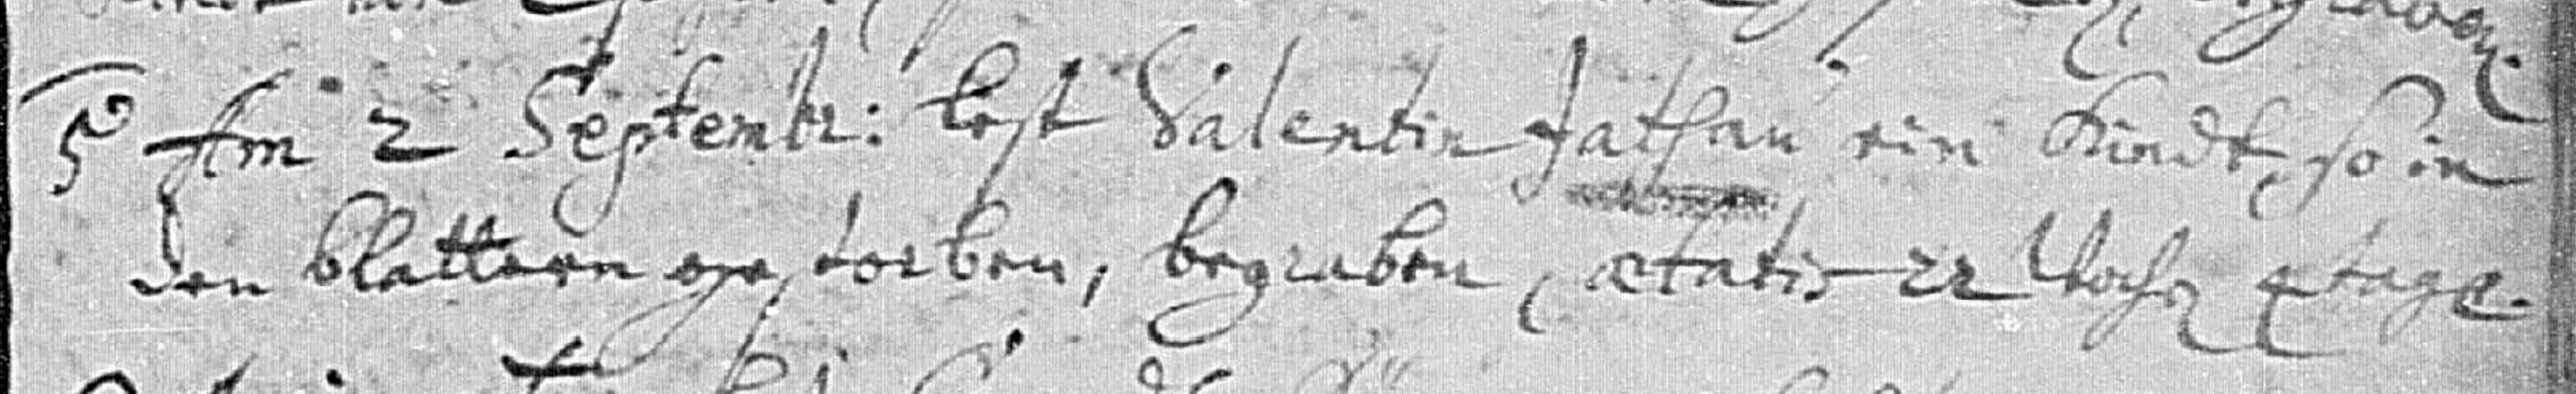 5 Am 2 Septembr: Lest Valentin Jathau ein Kindt, so in
den blattern gestorben, begraben, ætatis 22 Woch 4 tage.